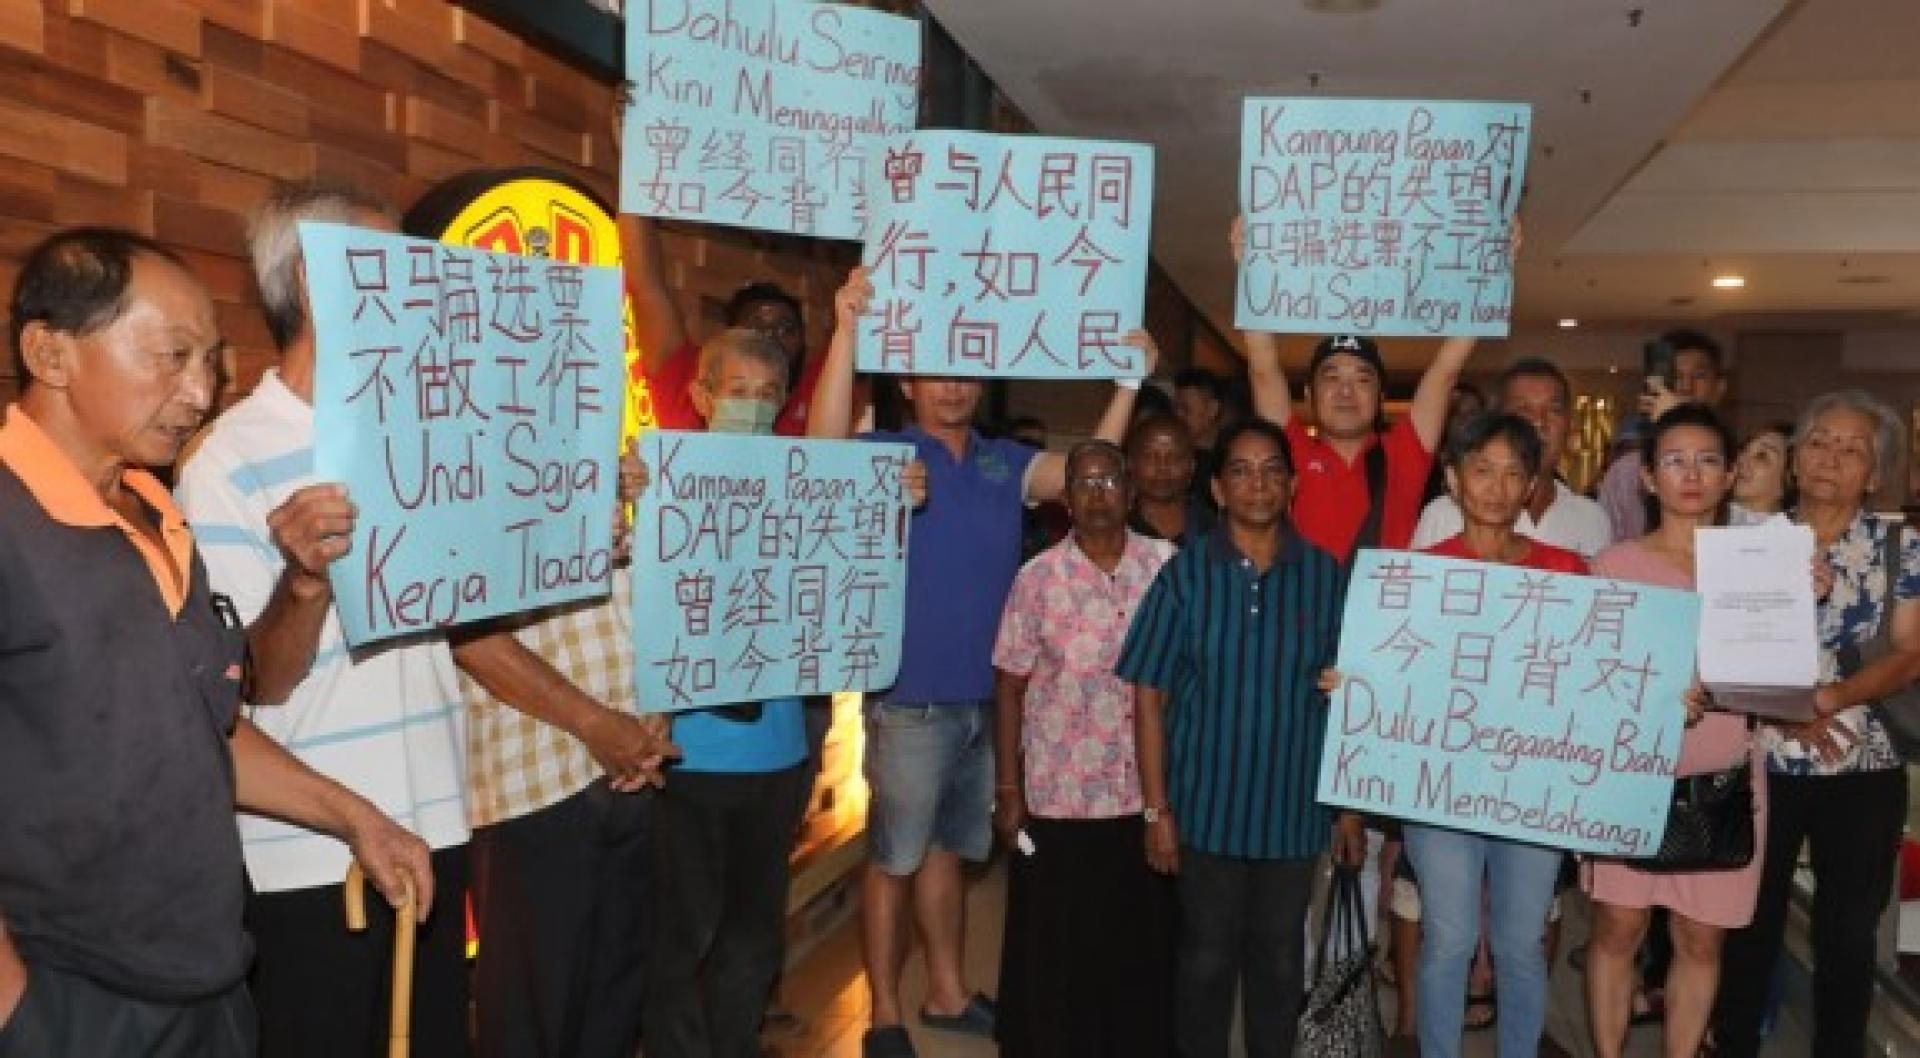 Dahulu Seiring
Kini Meninggalka
曾经同行
如今背弃
曾与人民同
行,如今
背向人民
Kampung Papan 对
DAP的失望!
只骗选票,不工做
Undi Saja Kerja Tiada
只骗选票
不做工作
Undi Saja
Kerja Tiada
Kampung Papan 对
DAP的失望!
曾经同行
如今背弃
昔日并肩
今日背对
Dulu Berganding Bahu
Kini Membelakangi